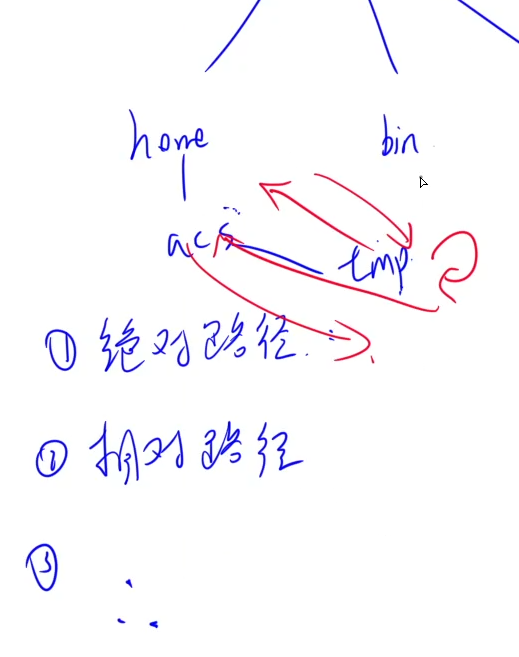 home bin
acs tmp
① 绝对路径
② 相对路径
③